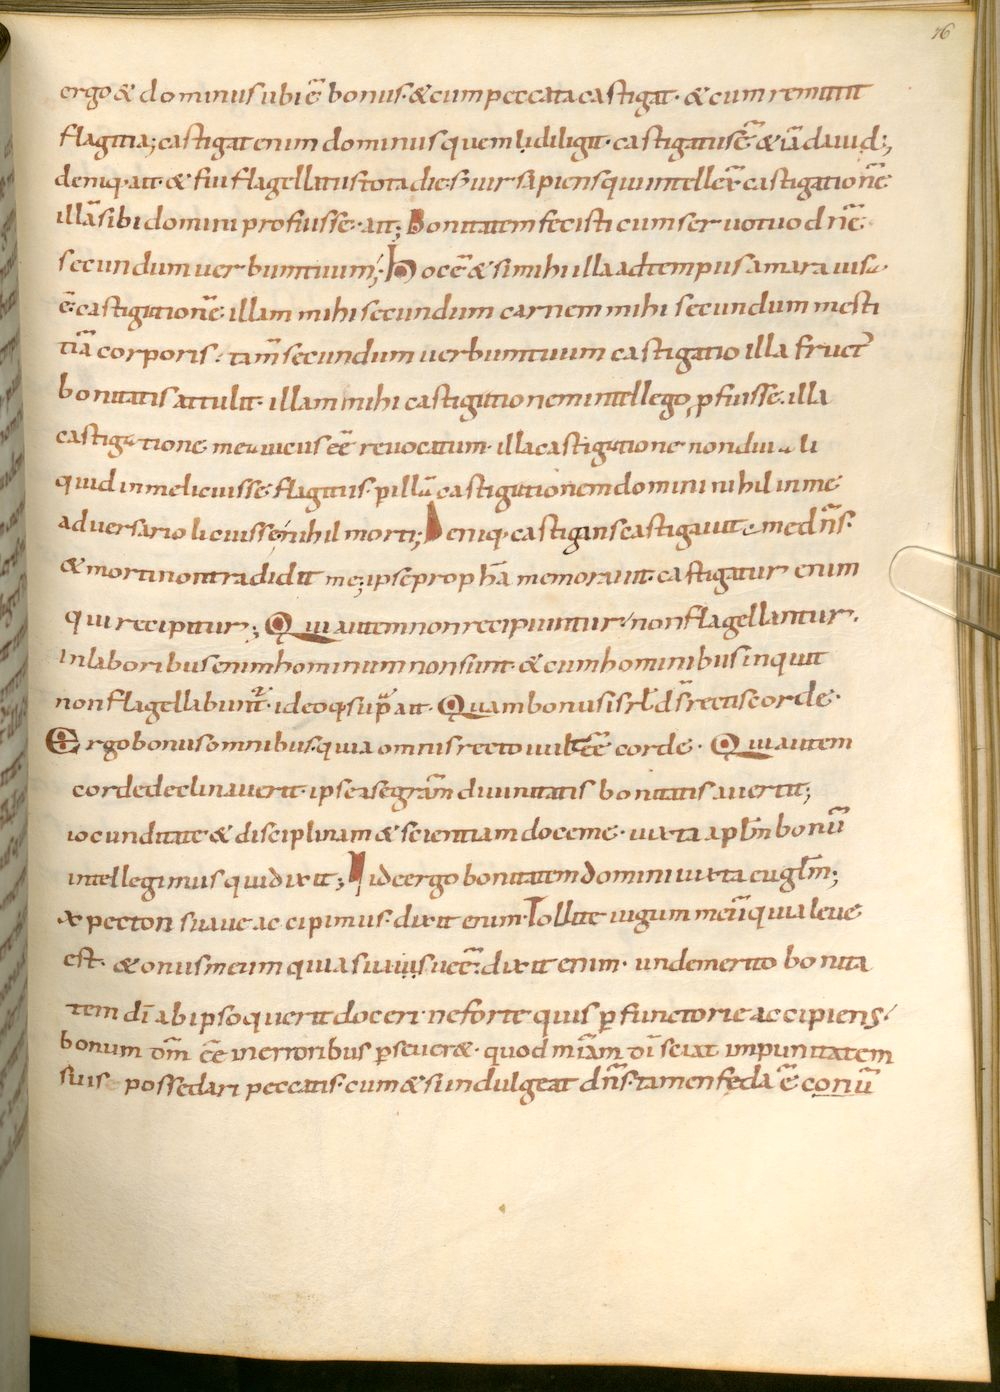 76
ergo & dominus ubi ē bonus· & cum peccata castigat· & cum remittit
flagitia; castigat enim dominus quem diligit· castigatus ē & iā dauid;
deniq· ait· & fui flagellatus tota die· uir sapiens qui intellex castigationē
illā sibi domini profuisse· ait; Bonitatem fecisti cum seruo tuo dnē·
secundum uerbum tuum; Hoc ē & si mihi illa ad tempus amara uisa
ē· castigationē illam mihi secundum carnem mihi secundum mesti
tiā corporis· tam̄ secundum uerbum tuum castigatio illa fruct̄
bonitatis attulit· illam mihi castigationem intellego ꝓfuisse· illa
castigatione mea uicus ēē reuocatum· illa castigatione non diu a li
quid in me licuisse flagitiis· ꝑ illā castigationem domini nihil in me
aduersario licuisse, nihil morti; Deniq· castigans castigauit me dn̄s·
& morti non tradidit me; ipse propha memorauit· castigatur enim
qui recipitur; Qui autem non recipiuntur, non flagellantur·
In laboribus enim hominum non sunt· & cum hominibus inquit
non flagellabunt̄· ideoq· supra ait· Quam bonus isrł ds̄ rectis corde·
Ergo bonus omnibus· quia omnis recto iubet ēē corde· Qui autem
corde declinauerit· ipse a se gratiam diuinitatis bonitatis auertit;
iocunditate & disciplinam & scientiam doce me· iuxta aplm̄ bonū
intellegimus quid ixit; Quid ergo bonitatem domini iuxta euglm̄;
expectori suaue accipimus· dixit enim· Tollite iugum meū quia leue
est· & onus meum quia suaue ē· dixit enim· unde merito bonita
tem dī ab ipso querit doceri· ne forte quis ꝑfunctorie accipiens·
bonum dm̄ ēē in erroribus ꝑseuer&· quod miām dī sciat impunitatem
suis possedari peccatis· cum & si indulgeat dn̄s· tamen feda ē conū